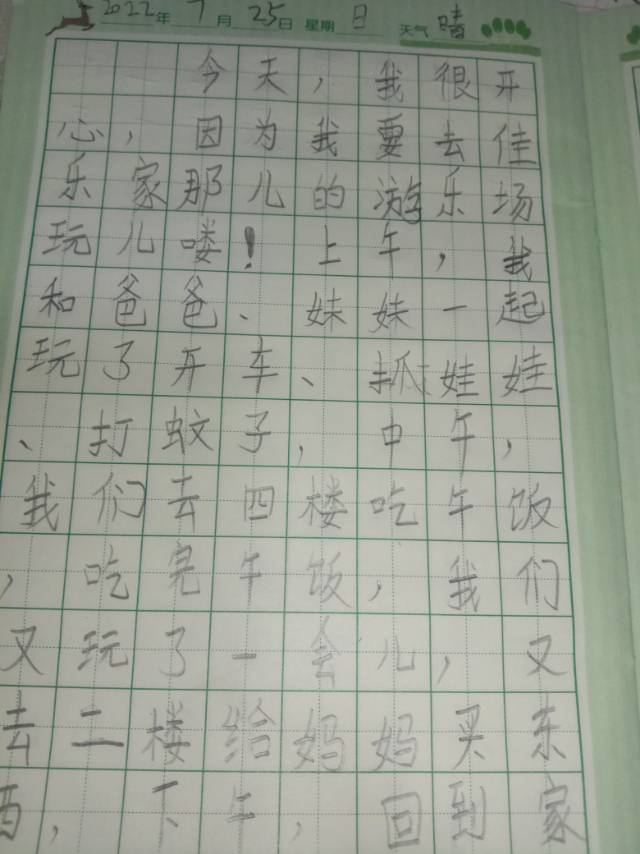 2022年7月25日 星期日 天气晴
今天，我很开
心，因为我要去佳
乐家那儿的游乐场
玩儿喽！上午，我
和爸爸、妹妹一起
玩了开车、抓娃娃
、打蚊子，中午，
我们去四楼吃午饭
，吃完午饭，我们
又玩了一会儿，又
去二楼给妈妈买东
西，下午，回到家